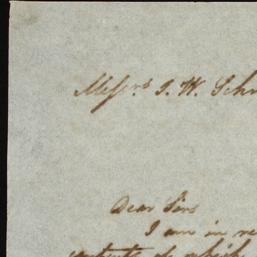 Messrs. J. W. Schr
Dear Sirs
I am in re
contents of which